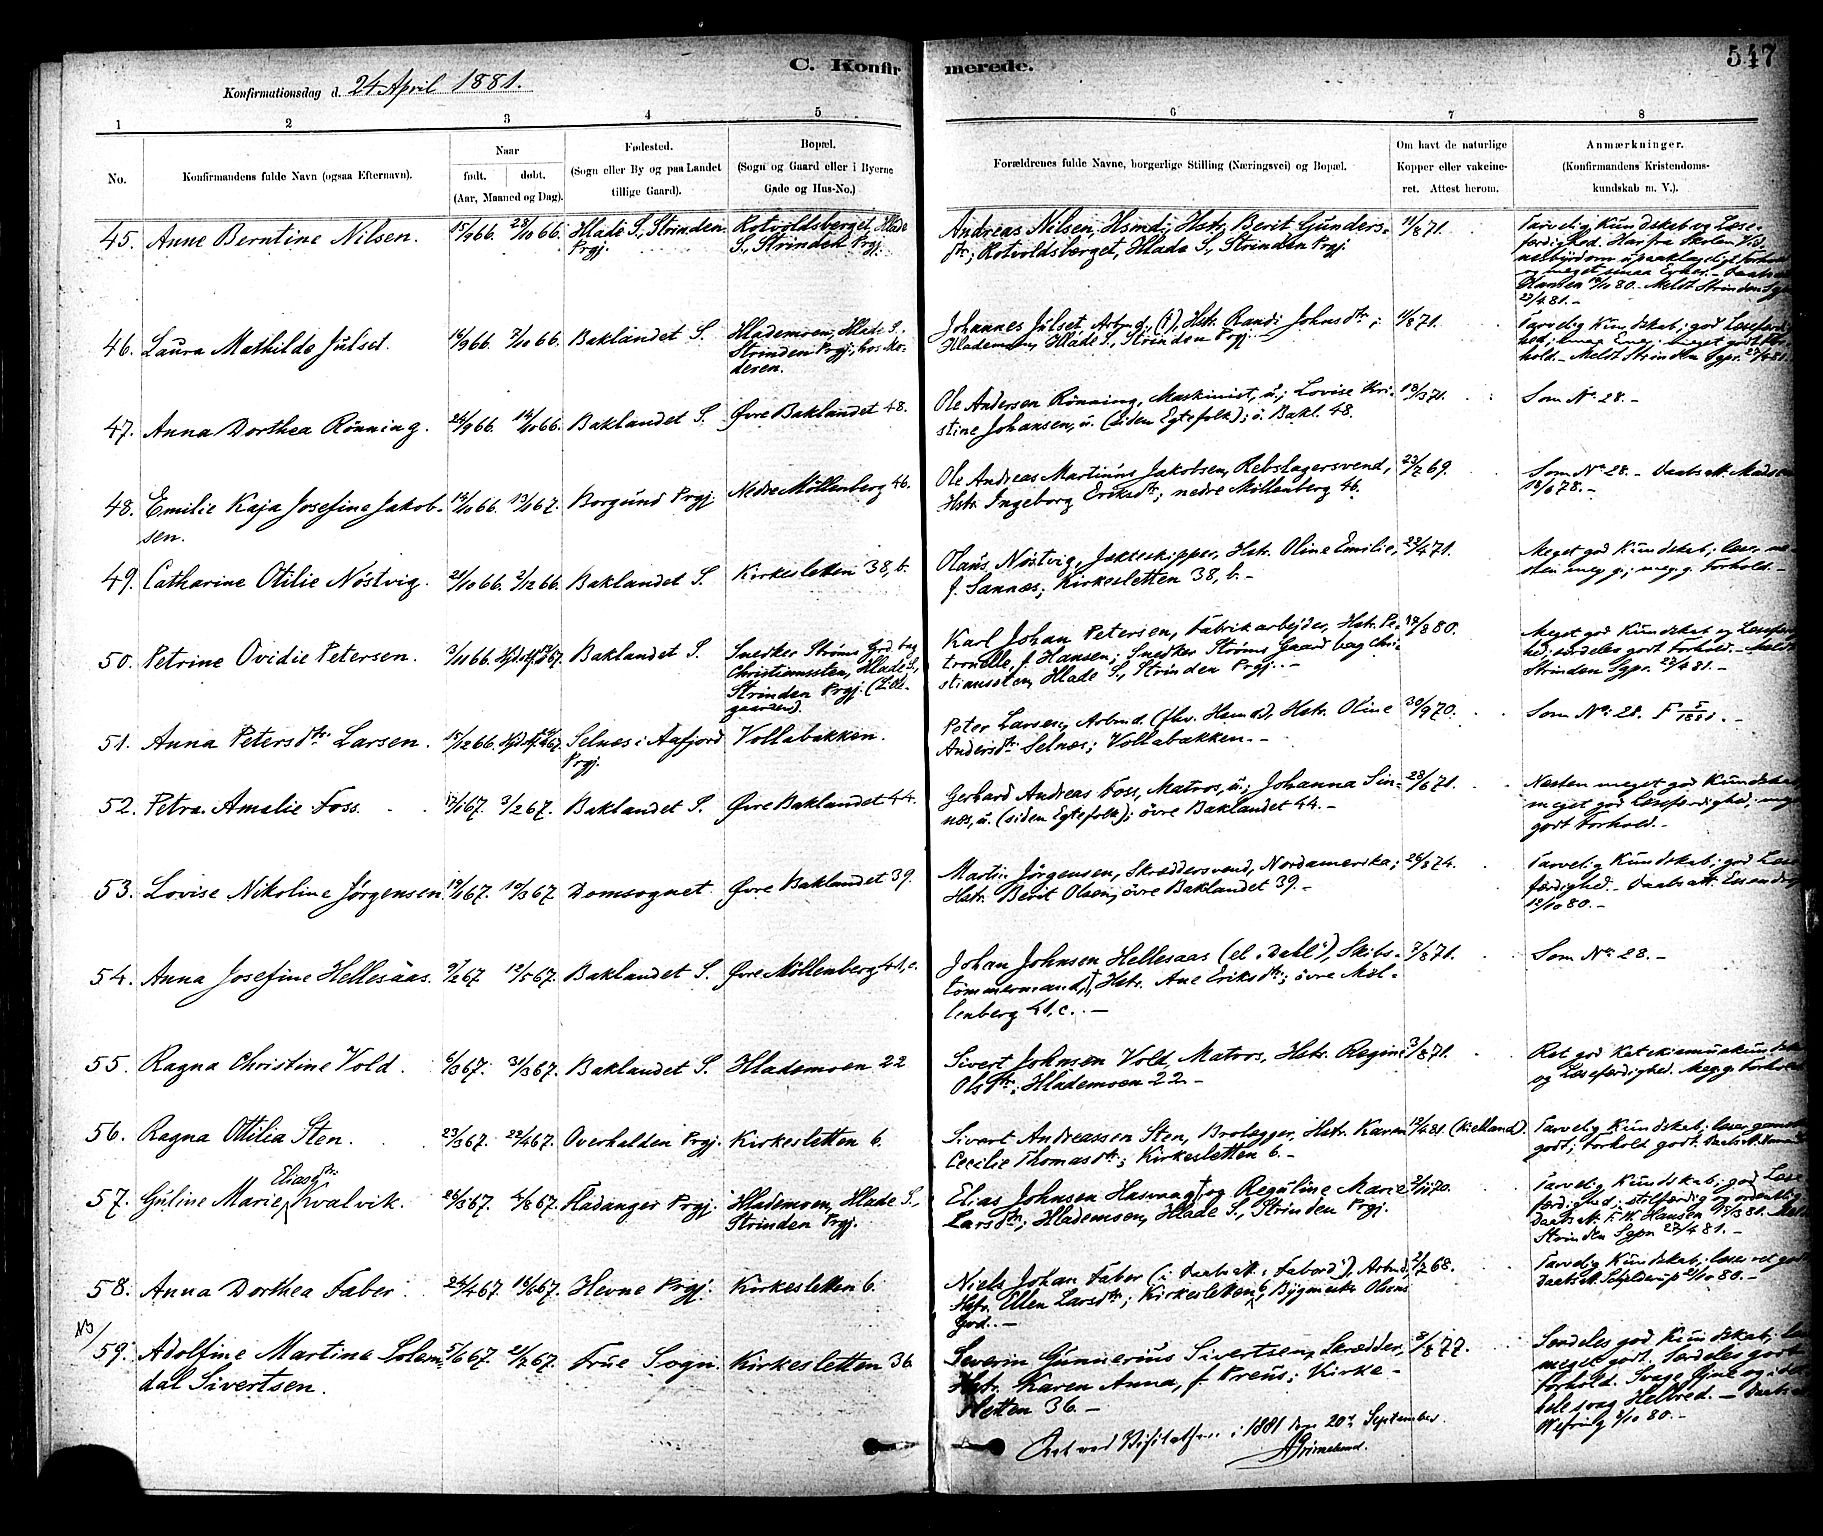 547
C. Konfirmerede.
Konfirmationsdag d. 24 April 1881.
1 2 3 4 5 6 7 8
No.
Konfirmandens fulde Navn (ogsaa Efternavn).
Naar
født. døbt.
(Aar, Maaned og Dag).
Fødested.
(Sogn eller By og paa Landet
tillige Gaard).
Bopæl.
(Sogn og Gaard eller i Byerne
Gade og Hus-No.)
Forældrenes fulde Navne, borgerlige Stilling (Næringsvei) og Bopæl.
Om havt de naturlige
Kopper eller vakcine-
ret. Attest herom.
Anmærkninger.
(Konfirmandens Kristendoms-
kundskab m. V.).
45. Anne Berntine Nilsen. 15/9 66. 28/10 66. Hlade S., Strinden
Prgj.
Rotvoldsberget, Hlade
S., Strinden Prgj.
Andreas Nilsen, Hsmd., Hstr. Berit Gunders-
dtr; Rotvoldsberget, Hlade S., Strinden Prgj.
11/8 71.
Tarvelig Kundskab og Læse-
færdighed. Har fra Skolen Vid-
nesbyrd om upaaklageligt Forhold
og meget smaa Evner. - Daabsatt.
Hansen 80. - Meldt Strinden Sgpr.
27/4 81. -
46. Laura Mathilde Julset. 16/9 66. 7/10 66. Baklandet S.
Hlademoen, Hlade S.,
Strinden Prgj., hos Mo-
deren.
Johannes Julset, Arbmd., (†), Hstr. Randi Johnsdtr;
Hlademoen, Hlade S., Strinden Prgj.
11/8 71.
Tarvelig Kundskab; god Læsefærdig-
hed; smaa Evner; meget godt For-
hold. - Meldt Strinden Sgpr. 27/4 81.
47. Anna Dorthea Rönning. 26/9 66. 14/10 66. Baklandet S. Øvre Baklandet 48.
Ole Andersen Rönning, Maskinist, u., Lovise Kri-
stine Johansen, u. (siden Egtefolk); ö. Bakl. 48.
13/3 71.
Som No 28. -
48. Emilie Kaja Josefine Jakob-
sen.
12/10 66. 13/1 67. Borgund Prgj. Nedre Möllenberg 46.
Ole Andreas Martinus Jakobsen, Rebslagersvend,
Hstr. Ingeborg Eriksdtr; nedre Möllenberg 46.
23/2 69.
Som No 28. - Daabsatt. Madsen
18/6 78. -
49. Catharine Otilie Nöstvig. 21/10 66. 2/12 66. Baklandet S. Kirkesletten 38, b.
Olaus Nöstvig, Jakteskipper, Hstr. Oline Emilie,
f. Sannæs; Kirkesletten 38, b. -
22/4 71.
Meget god Kundskab; læser næ-
sten meg. g.; meg. g. Forhold. -
50. Petrine Ovidie Petersen. 3/11 66. Baklandet S.
Snedker Ströms Grd. bag
Christiansten, Hlade S.,
Strinden Prgj.
Karl Johan Petersen, Fabrikarbejder, Hstr. Pe-
tronelle, f. Hansen; Snedker Ströms Gaard bag Chri-
stiansten, Hlade S., Strinden Prgj. -
18/8 80.
Meget god Kundskab og Læsefærdig-
hed; særdeles godt Forhold. - Meldt
Strinden Sgpr. 27/4 81. -
51. Anna Petersdtr Larsen. 15/12 66. Selnæs i Aafjord
Prgj.
Vollabakken.
Peter Larsen, Arbmd. (fhv. Hsmd.), Hstr. Oline
Andersdtr Selnæs; Vollabakken. -
30/9 70.
Som No: 28. F 5/1881. -
52. Petra Amalie Foss. 17/1 67. 3/2 67. Baklandet S. Øvre Baklandet 44.
Gerhard Andreas Foss, Matros, u., Johanna Sin-
næs, u. (siden Egtefolk); övre Baklandet 44. -
28/6 71.
Næsten meget god Kundskab,
meget god Læsefærdighed, meget
godt Forhold. -
53. Lovise Nikoline Jörgensen. 19/1 67. 10/3 67. Domsognet. Øvre Baklandet 39.
Martin Jörgensen, Skræddersvend, Nordamerika;
Hstr. Berit Olsen, övre Baklandet 39. -
26/8 74.
Tarvelig Kundskab; god Læse-
færdighed. - Daabsatt. Essendrop
12/10 80. -
54. Anna Josefine Hellesaas. 9/2 67. 12/5 67. Baklandet S. Øvre Möllenberg 41, c.
Johan Johnsen Hellesaas (el. "Dahl"), Skibs-
tömmermand, †, Hstr. Ane Eriksdtr; övre Möl-
lenberg 41, c. -
7/8 71.
Som No 28. -
55. Ragna Christine Vold. 6/3 67. 31/3 67. Baklandet S. Hlademoen 22
Sivert Johnsen Vold, Matros, Hstr. Regine
Olsdtr; Hlademoen 22. -
3/8 71.
Ret god Katekismuskundskab
og Læsefærdighed. Meg. g. Forhold.
56. Ragna Otilia Sten. 23/3 67. 22/4 67. Overhalden Prgj. Kirkesletten 6.
Sivart Andreassen Sten, Brolægger, Hstr. Karen
Cecilie Thomasdtr; Kirkesletten 6. -
19/4 81 (Kielland).
Tarvelig Kundskab; læser ganske
godt; Forhold godt.
57. Guline Marie Eliasdtr. Kvalvik. 26/3 67. 4/8 67. Fladanger Prgj.
Hlademoen, Hlade S.,
Strinden Prgj.
Elias Johnsen Hasvaag † og Reguline Marie
Larsdtr; Hlademoen, Hlade S., Strinden Prgj.
2/11 70.
Tarvelig Kundskab, god Læse-
færdighed; stilfærdig og ordentlig.
Daabsatt. F. W. Hansen 81. Meldt
Strinden Sgpr 27/4 81. -
58. Anna Dorthea Faber. 24/4 67. 16/6 67. Hevne Prgj. Kirkesletten 6.
Niels Johan Faber (i Daabsatt. "Fabord"), Arbmd.,
Hstr. Ellen Larsdtr; Kirkesletten 6, Bygmester Olsens
Grd. -
2/2 68.
Tarvelig Kundskab; læser ret godt.
Daabsatt. Schjelderup 2/10 80. -
NB/
59. Adolfine Martina Solem-
dal Sivertsen.
5/6 67. 21/7 67. Frue Sogn. Kirkesletten 36
Severin Gunnerius Sivertsen, Skrædder,
Hstr. Karen Anna, f. Preus; Kirke-
sletten 36. -
8/8 77.
Særdeles god Kundskab; læser
meget godt. Særdeles godt
Forhold. Svage Øjne og i det
hele svag Helbred. - Daabsatt.
Wefring 9/10 80. -
Seet ved Visitatsen i 1881 den 20de September.
AGrimelund.